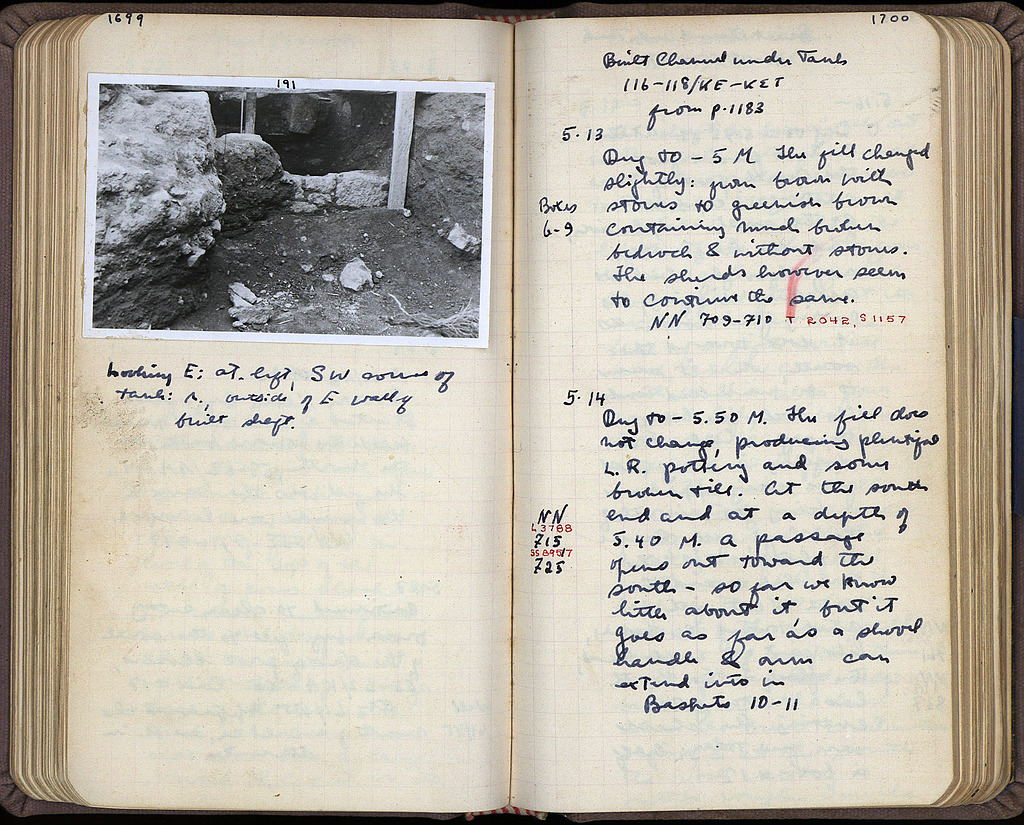 1699
191
Looking E; at left, SW corner of
tank: R., outside of E wall of
built shaft.
1700
Built Channel under Tank
116-118/ΚΕ-ΚΣΤ
from p. 1183
5·13
Dug to -5 M. The fill changed
slightly: from brown with
stones to greenish brown
containing much broken
bedrock & without stones.
The sherds however seem
to continue the same.
Boxes
6-9
NN 709-710 T 2042, S 1157
5·14
Dug to -5.50 M. The fill does
not change, producing plentiful
L.R. pottery and some
broken tile. At the south
end and at a depth of
5.40 M. a passage
opens out toward the
south - so far we know
little about it but it
goes as far as a shovel
handle & arm can
extend into in
Baskets 10-11
NN
L3788
715
SS8957
725